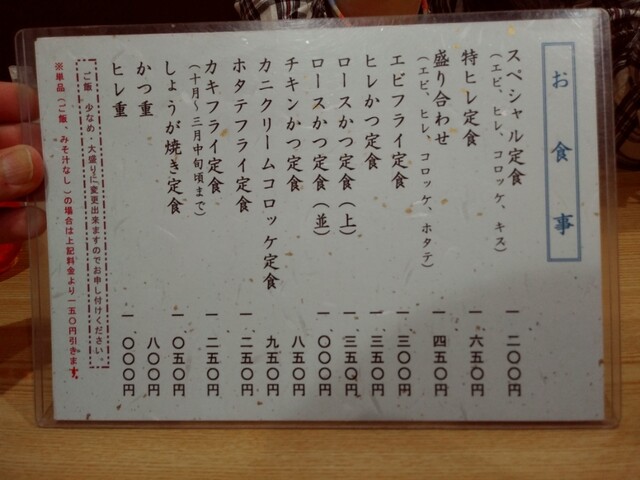 お食事
スペシャル定食 一、二〇〇円
(エビ、ヒレ、コロッケ、キス)
特ヒレ定食 一、六五〇円
盛り合わせ 一、四五〇円
(エビ、ヒレ、コロッケ、ホタテ)
エビフライ定食 一、三〇〇円
ヒレかつ定食 一、三五〇円
ロースかつ定食(上) 一、三五〇円
ロースかつ定食(並) 一、〇〇〇円
チキンかつ定食 八五〇円
カニクリームコロッケ定食 九五〇円
ホタテフライ定食 一、二五〇円
カキフライ定食 一、二五〇円
(十月〜三月中旬頃まで)
しょうが焼き定食 一、〇五〇円
かつ重 八〇〇円
ヒレ重 一、〇〇〇円
ご飯 少なめ・大盛りに変更出来ますのでお申し付けください。
※単品(ご飯、みそ汁なし)の場合は上記料金より一五〇円引きます。